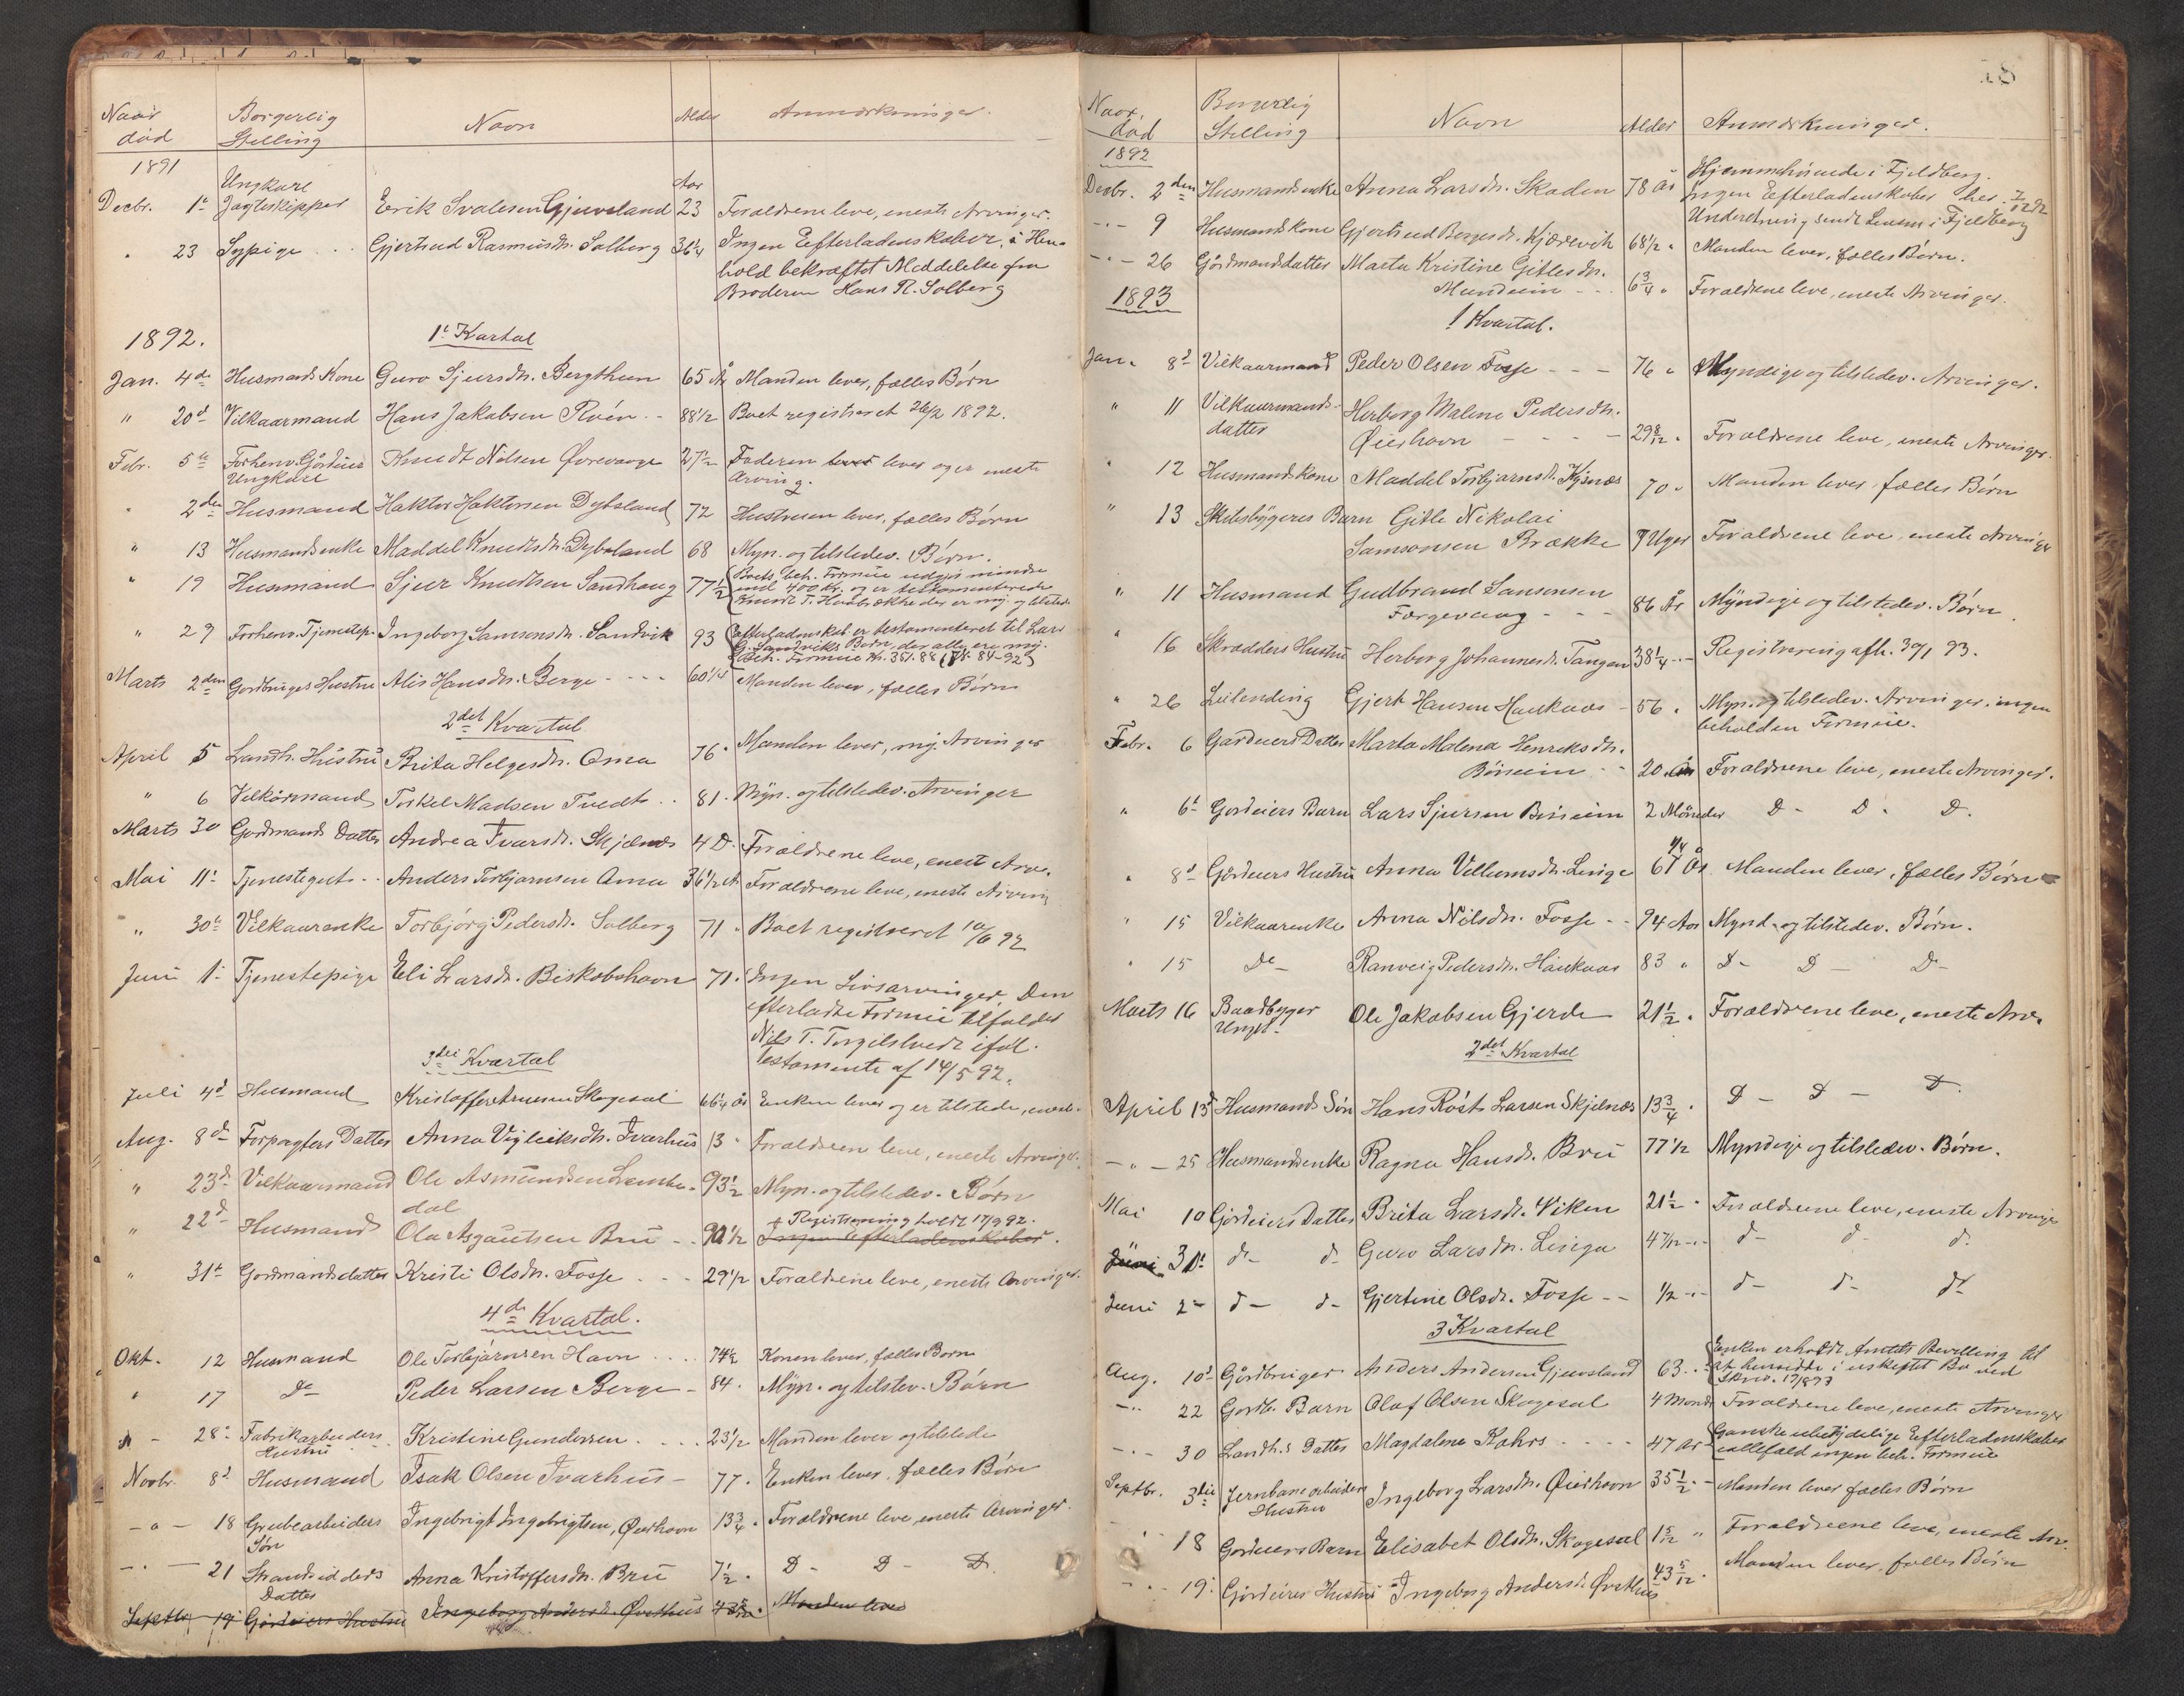 Naar død Borgerlig Stilling Navn Alder Anmærkninger.
1891
Decbr. 1te Ungkarl Jagteskipper Erik Svalesen Gjuvsland Aar 23 Forældrene leve, eneste Arvinger.
" 23 Sypige Gjertrud Rasmusdtr. Solberg 36 1/4 Ingen Eefterladenskaber, i Hen-
hold bekræftet Meddelelse fra
Broderen Hans R. Solberg
1892. 1te Kartal
Jan. 4de Husmands Kone Guro Sjursdtr. Bergthun 65 År Manden lever, fælles Børn
" 20d Vilkaarmand Hans Jakobsen Røén 88 1/2 Boet registreret 26/2 1892.
Febr. 5te Forhenv. Gårdeier Ungkarl Knudt Nilsen Ørevaage 27 1/2 Faderen lever og er eneste
Arving.
" 2den Husmand Haktor Haktorsen Dybsland 72 Hustruen lever, fælles Børn
" 13 Husmandsenke Maddel Knudsdtr. Dybsland 68 Myn. og tilstedev. Børn.
" 19 Husmand Sjur Knudtsen Sandhaug 77 1/2 Boets beh. Formue udgjør mindre
end 400 Kr. og er testamenterede
Knudt T. der er my. og tilsted.
" 29 Forhenv. Tjenestep. Ingeborg Samsonsdtr. Sandvik 93 efterladenskab er testamenteret til Lars
G. Sandviks Børn, der alle ere my.
Beh. Formue Kr. 351.88
Marts 2den Gordbruges Hustru Alis Hansdtr. Berge 60 1/4 Manden lever, fælles Børn
2det Kvartal
April 5 Landh. Hustru Brita Helgesdtr. Oma 76 Manden lever, myn. Arvinger
" 6 Vilkårmand Torkel Madsen Tvedt 81. Myn. og tilstedev. Arvinger
Marts 30 Gordmands Datter Andrea Ivarsdtr. Skjelnes 4 D. Forældrene leve, enest Arv.
Mai 11te Tjenestegut Anders Torbjørnsen Oma 36 1/2 År Forældrene leve, eneste Arving
" 30te Vilkaarenke Torbjørg Pedersdtr. Solberg 71 Boet registreret 10/6 92
Juni 1te Tjenestepige Eli Larsdtr. Biskobshavn 71. Ingen Livsarvinger. Den
efterladte Formue tilfalder
Nils T. Torgilstvedt iføl.
Testamente af 14/5 92.
3die Kvartal
Juli 4d Husmand Kristoffer Arnesen Skogesal 66 1/4 År Enken lever og er tilstede,
Aug. 8d Forpagters Datter Anna Vigleiksdtr. Ivarhus 13 Forældrene leve, eneste Arvinger.
" 23d Vilkaarmand Ole Asmundsen Lembe-
dal 93 1/2 Myn. og tilstedev. Børn
" 22d Husmand Ola Asgautsen Bru 90 1/2 + Registrering holdt 17/9 92.
Ingen Efterladenskaber.
" 31te Gordmandsdatter Kristi Olsdtr. Fosse 29 1/2 Forældrene leve, eneste Arvinger.
4de Kvartal.
Okt. 12 Husmand Ole Torbjørnsen Havn 74 1/2 Konen lever, fælles Børn
" 17 Do Peder Larsen Berge 84. Myn. og tilstev. Børn
" 28de Fabrikarbeiders Hustru Kristine Gundersen 23 1/2 Manden lever og tilstede
Novbr. 8d Husmand Isak Olsen Ivarhus 77. Enken lever, fælles Børn
" 18 Grubearbeiders Søn Ingebrigt Ingebrigtsen, Øierhavn 13 3/4 Forældrene leve, eneste Arvinger.
" 21 Strandsidders Datter Anna Kristoffersdtr. Bru 7 1/2. D- D- D.
Septbr 19 Gårdeiers Hustru Ingeborg Andersdtr. Øvsthus 43 Manden lever
18
Naar død Borgerlig Stilling Navn Alder Anmærkninger.
1892
Decbr. 2den Husmandsenke Anna Larsdtr. Skaden 78 År Hjemmehørende i Fjeldberg.
Ingen Efterladenskaber her.
Underetning sendt Lensm. i Fjeldberg
" 9 Husmands Kone Gjertrud Borgesdtr. Kjærevik 68 1/2 Manden lever, fælles Børn.
" 26 Gårdmandsdatter Marta Kristine Gitlesdtr.
Mundheim 6 3/4 Forældrene leve, eneste Arvinger.
1893
1 Kvartal.
Jan. 8d Vilkaarmand Peder Olsen Fosse 76 Myndige og tilstedev. Arvinger.
" 11 Vilkaarmands-
datter Herborg Malene Pedersdtr.
Øierhavn 29 8/12 Forældrene leve, eneste Arvinger.
" 12 Husmands Kone Maddel Torbjørnsdtr. Kysnes 70 Manden lever, fælles Børn
" 13 Skibsbygeres Barn Gitle Nikolai
Samsonsen Brække 7 Uger Forældrene leve, eneste Arvinger
" 11 Husmand Gudbrand Samsonsen
Færgevaag 86 År Myndige og tilstedev. Børn.
" 16 Skrædders Hustru Herborg Johannesdtr. Tangen 38 1/4 Registrering afh. 30/1 93.
" 26 Leilending Gjert Hansen Haukaas 56 Myn. og tilstedev. Arvinger, ingen
beholden Formue.
Febr. 6 Gardeiers Datter Marta Malena Henriksdtr.
Bøneim 20 År Forældrene leve, eneste Arvinger.
" 6te Gordeiers Barn Lars Sjursen Bøneim 2 Måneder D- D. D.
" 8d Gårdeiers Hustru Anna Villumsdtr. Linge 67 1/4 År Manden lever, fælles Børn
" 15 Vilkaarenke Anna Nilsdtr. Fosse 94 Aar Mynd. og tilstedev. Børn.
" 15 Do Ranveig Pedersdtr. Haukaas 83 " D- D- D-
Marts 16 Baadbygger Ungk. Ole Jakobsen Gjerde 21 1/2 Forældrene leve, eneste Arv.
2det Kvartal
April 13d Husmands Søn Hans Røst Larsen Skjelnæs 13 3/4 D- D- D.
" 25 Husmandsenke Ragna Hansdtr. Bru 77 1/2 Myndige og tilstedev. Børn.
Mai 10 Gårdeiers Datter Brita Larsdtr. Viken 21 1/2 Forældrene leve, eneste Arvinge
Juni 31te d- d- Guro Larsdtr. Linga d- d- d.
Juni 2- d- d- Gjertine Olsdtr. Fosse 1/2 d- d- d-
3 Kvartal
Aug. 10de Gårdbruger Anders Andersen Gjuvsland 63 Enken erholdt Amtets Bevilling til
at hensidde i uskiftet Bo ved
Skriv. 17/8 93
" 22 Gordb. Barn Olaf Olsen Skogesal 4 Mond Forældrene leve, eneste Arvinger
" 30 Landh.s Datter Magdalena Rahrs 47 År Ganske ubetydelige Efterladenskaber
iallefald ingen beh. Formue
Septbr. 3die Jernbanearbeiders Hustru Ingeborg Larsdtr. Øierhavn 35 1/2 Manden lever fælles Børn
" 18 Gordeiers Barn Elisabet Olsdtr. Skogesal 1 5/12 " Forældrene leve, eneste Arv.
" 19. Gårdeiers Hustru Ingeborg Andersdtr. Øvsthus 43 5/12. Manden lever, fælles Børn